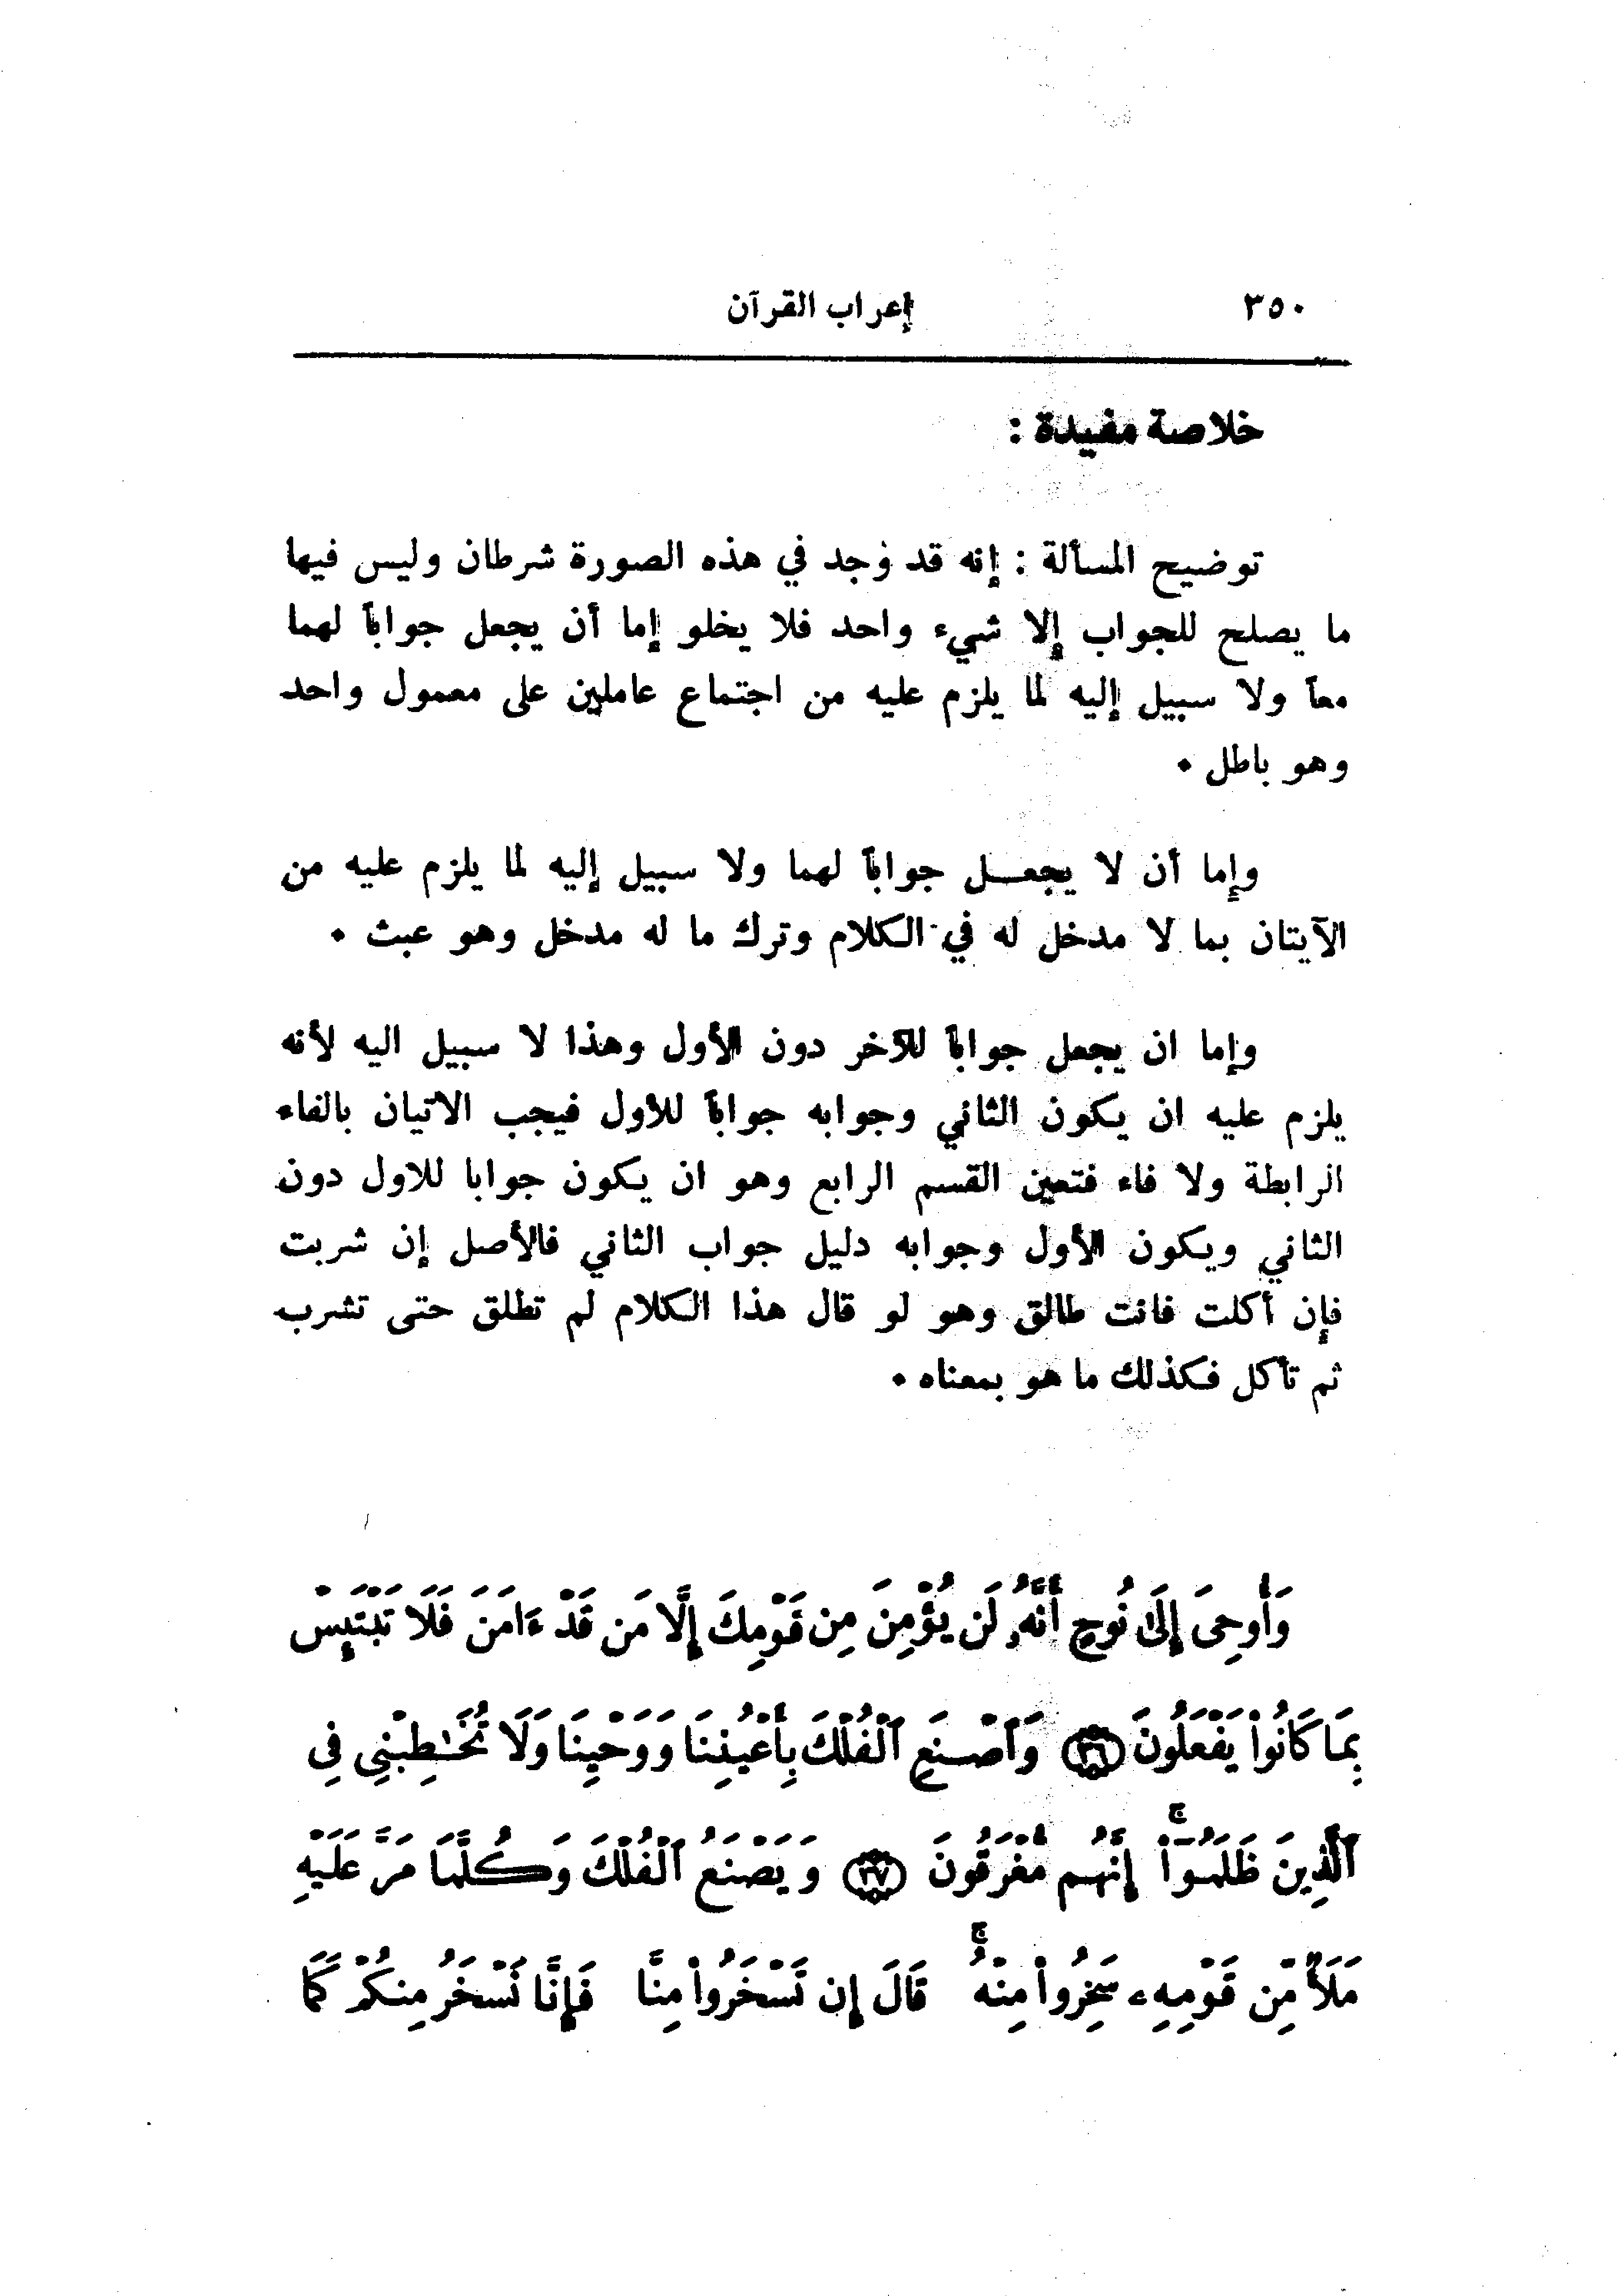 ٣٥٠ إعراب القرآن
خلاصة مفيدة :
توضيح المسألة : إنه قد وُجد في هذه الصورة شرطان وليس فيها
ما يصلح للجواب إلا شيء واحد فلا يخلو إما أن يجعل جواباً لهما
معاً ولا سبيل إليه لما يلزم عليه من اجتماع عاملين على معمول واحد
وهو باطل ٠
وإما أن لا يجعل جواباً لهما ولا سبيل إليه لما يلزم عليه من
الآيتان بما لا مدخل له في الكلام وترك ما له مدخل وهو عبث ٠
وإما ان يجعل جواباً للآخر دون الأول وهذا لا سبيل اليه لأنه
يلزم عليه ان يكون الثاني وجوابه جواباً للأول فيجب الاتيان بالفاء
الرابطة ولا فاء فتعين القسم الرابع وهو ان يكون جوابا للاول دون
الثاني ويكون الأول وجوابه دليل جواب الثاني فالأصل إن شربت
فإن أكلت فانت طالق وهو لو قال هذا الكلام لم تطلق حتى تشرب
ثم تأكل فكذلك ما هو بمعناه ٠
وَأُوحِىَ إِلَىٰ نُوحٍ أَنَّهُۥ لَن يُؤْمِنَ مِن قَوْمِكَ إِلَّا مَن قَدْ ءَامَنَ فَلَا تَبْتَئِسْ
بِمَا كَانُوا۟ يَفْعَلُونَ ﴿٣٦﴾ وَٱصْنَعِ ٱلْفُلْكَ بِأَعْيُنِنَا وَوَحْيِنَا وَلَا تُخَـٰطِبْنِى فِى
ٱلَّذِينَ ظَلَمُوٓا۟ ۚ إِنَّهُم مُّغْرَقُونَ ﴿٣٧﴾ وَيَصْنَعُ ٱلْفُلْكَ وَكُلَّمَا مَرَّ عَلَيْهِ
مَلَأٌ مِّن قَوْمِهِۦ سَخِرُوا۟ مِنْهُ ۚ قَالَ إِن تَسْخَرُوا۟ مِنَّا فَإِنَّا نَسْخَرُ مِنكُمْ كَمَا